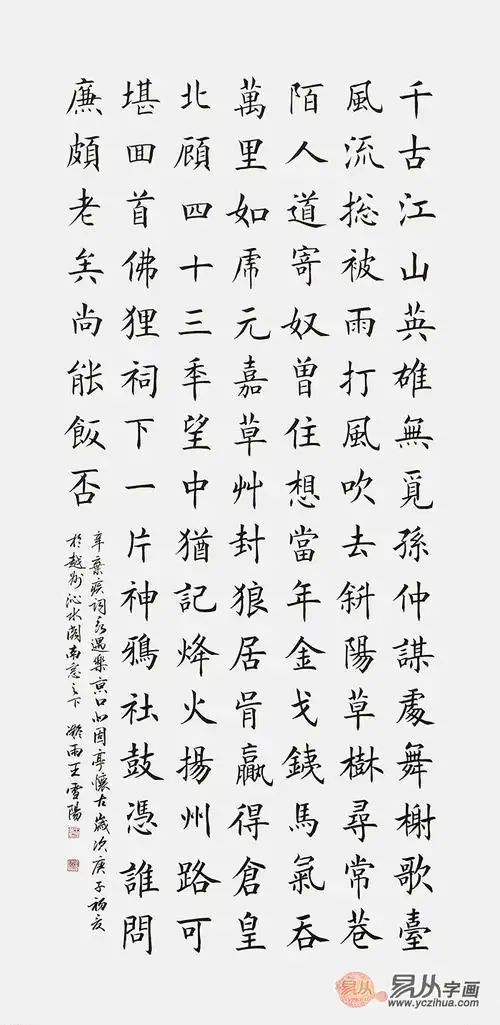 千古江山英雄無覓孫仲謀處舞榭歌臺
風流揔被雨打風吹去斜陽草樹尋常巷
陌人道寄奴曾住想當年金戈鐵馬氣吞
萬里如虎元嘉草艸封狼居胥贏得倉皇
北顧四十三季望中猶記烽火揚州路可
堪回首佛狸祠下一片神鴉社鼓憑誰問
廉頗老矣尚能飯否
辛棄疾詞永遇樂京口北固亭懷古歲次庚子初夏
於越州沁水閣南窓之下 凝雨王雪陽
易从
易从字画
www.yczihua.com